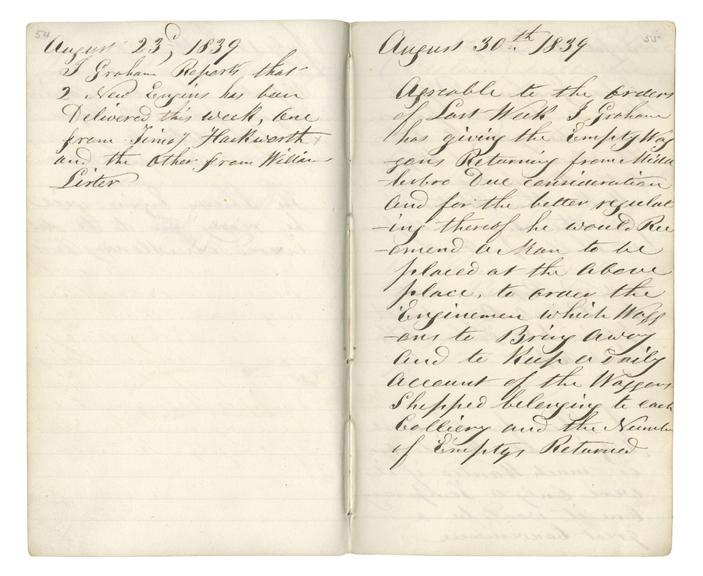 54
August 23d, 1839
J Graham Reports, that
2 New Engins has been
Delivered this week, one
from Timoy Hackworth
and the other from William
Lister
55
August 30th 1839
Agreable to the orders
of Last Week J Graham
has giving the Empty Wag
gons Returning from Middl
-esbro Due consideration
and for the better regulat
-ing thereof he would Rec
-omend a Man to be
placed at the above
place, to order the
Enginemen which Wagg
-ons to Bring away
and to Keep a Daily
account of the Waggons
Shepped belonging to each
Colliery and the Number
of Emptys Returned